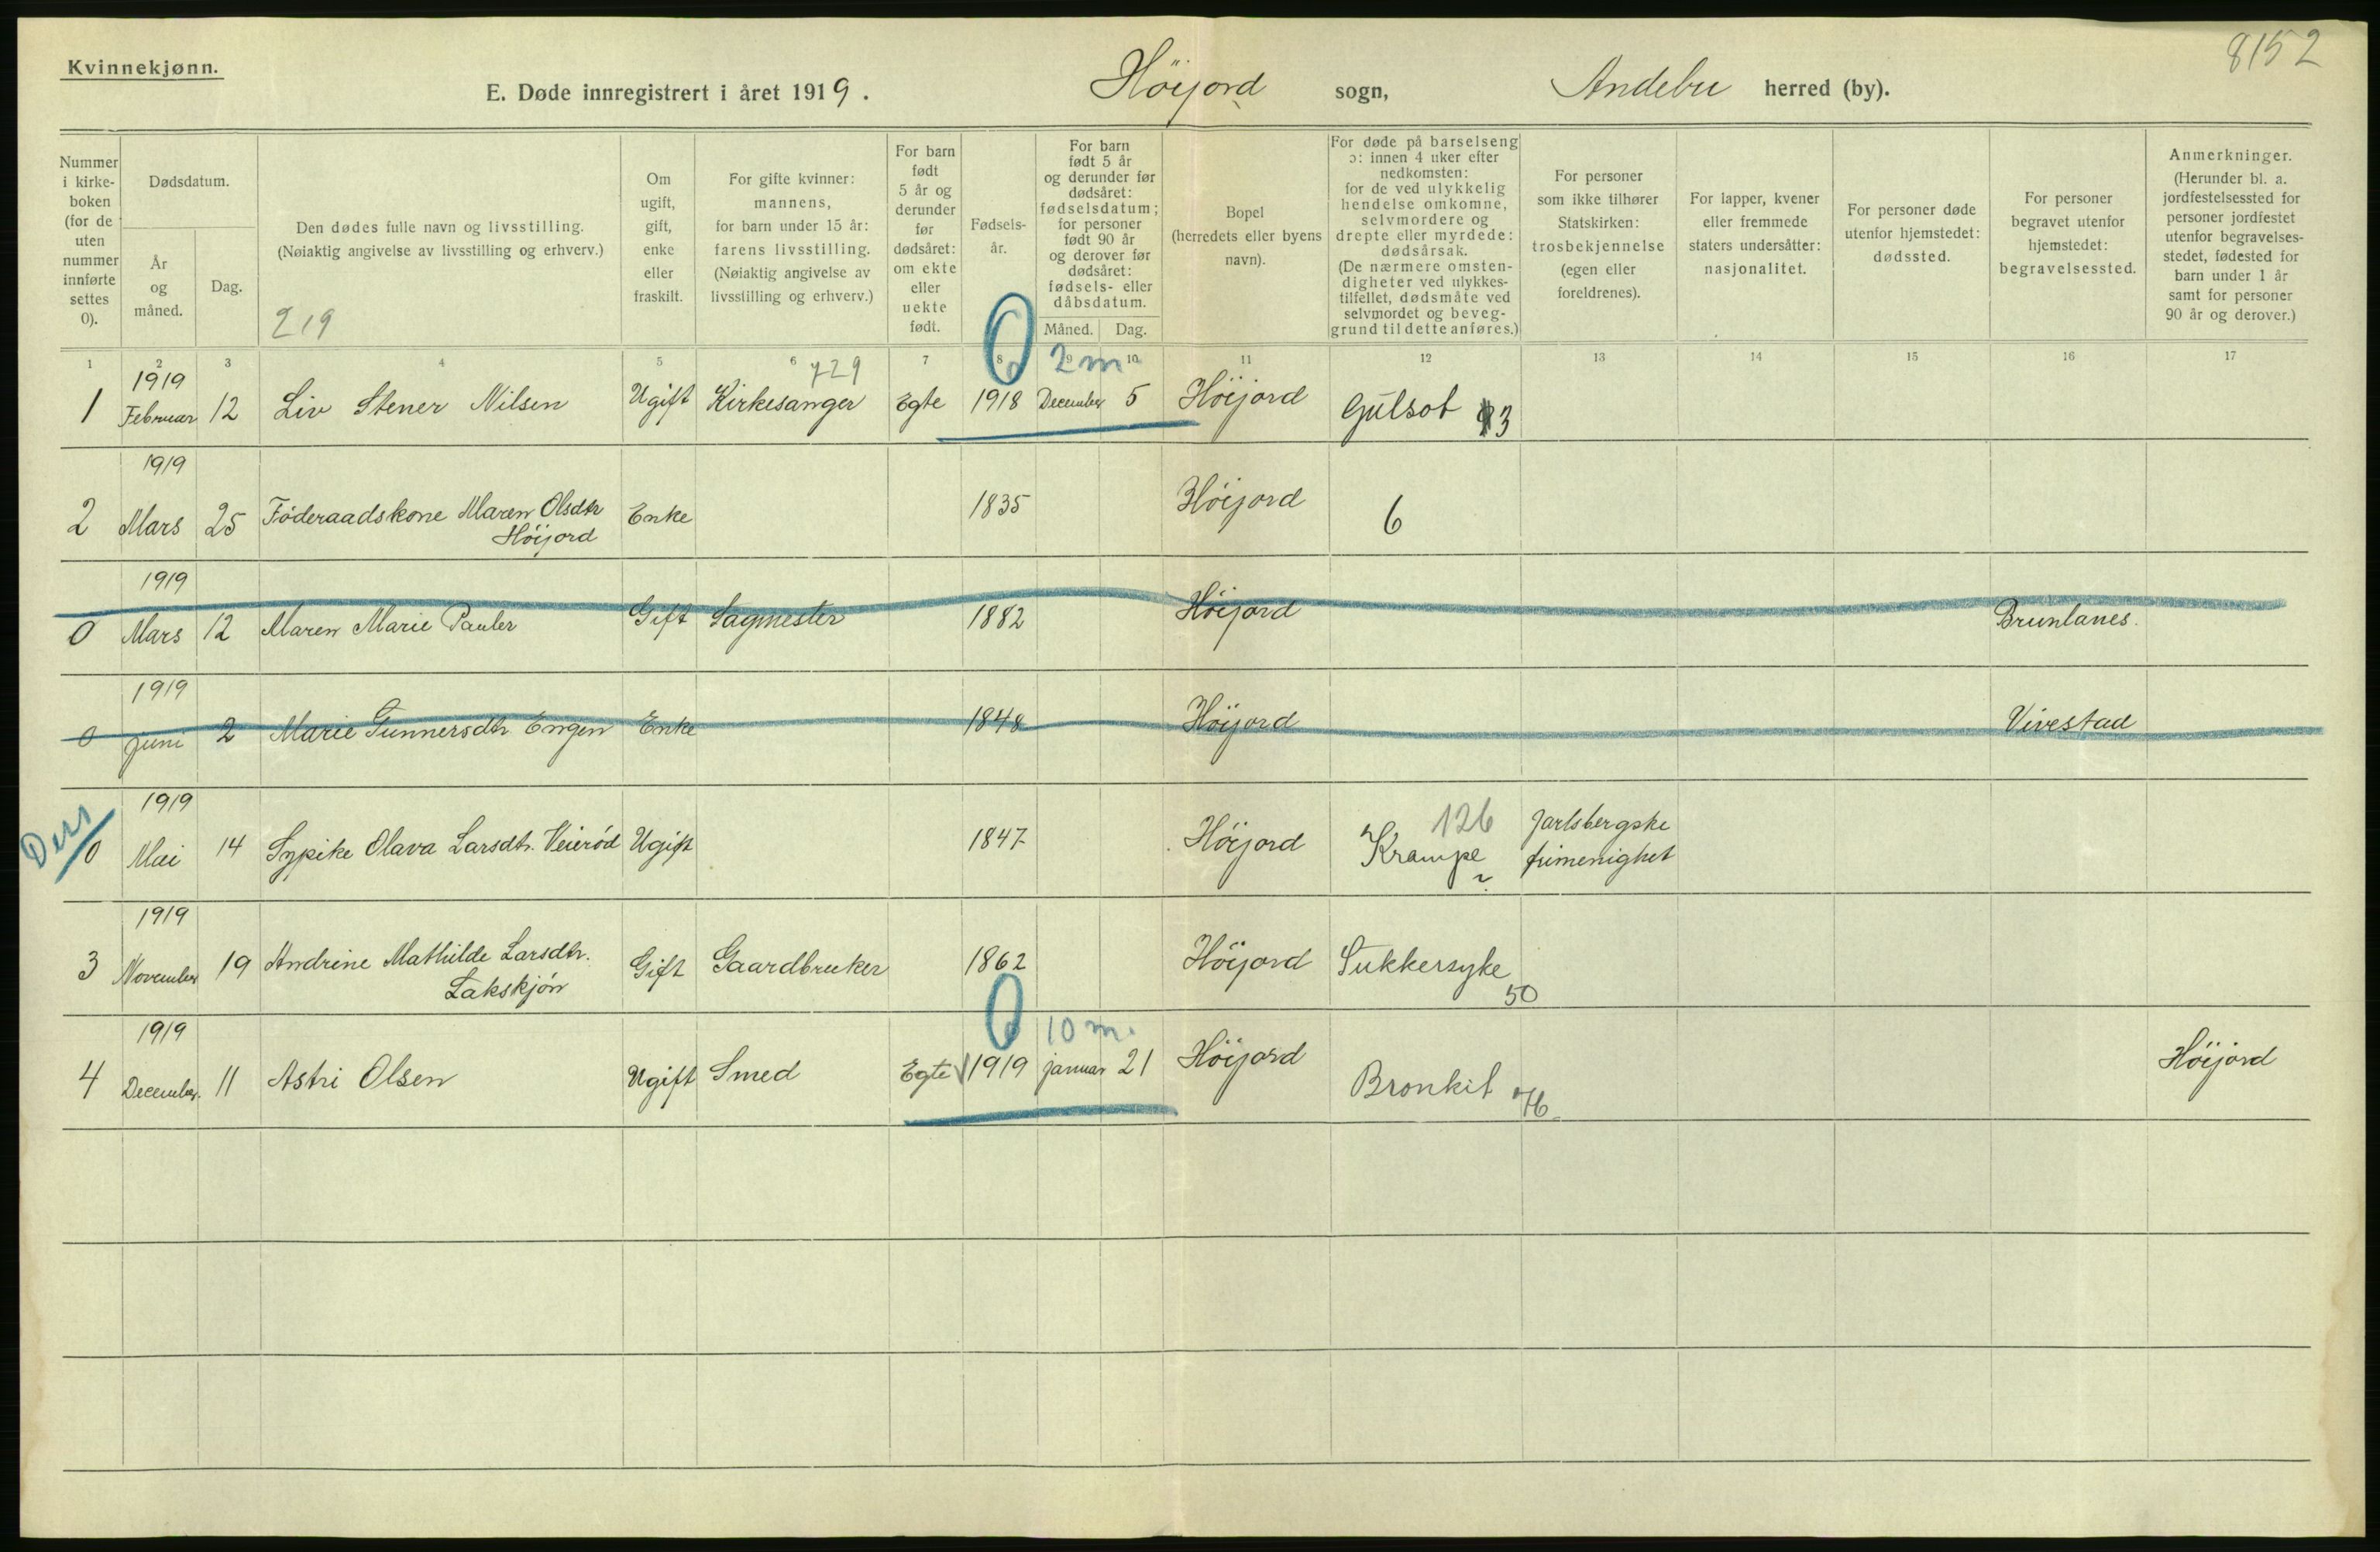 Kvinnekjønn.
8152
E. Døde innregistrert i året 1919. Höijord sogn, Andebu herred (by).
Nummer
i kirke-
boken
(for de
uten
nummer
innførte
settes
0).
Dødsdatum.
År
og
måned.
Dag.
Den dødes fulle navn og livsstilling.
(Nøiaktig angivelse av livsstilling og erhverv.)
219
Om
ugift,
gift,
enke
eller
fraskilt.
For gifte kvinner:
mannens,
for barn under 15 år:
farens livsstilling.
(Nøiaktig angivelse av
livsstilling og erhverv.)
For barn
født
5 år og
derunder
før
dødsåret:
om ekte
eller
uekte
født.
Fødsels-
år.
For barn
født 5 år
og derunder før
dødsåret:
fødselsdatum;
for personer
født 90 år
og derover før
dødsåret:
fødsels- eller
dåbsdatum.
Måned. Dag.
Bopel
(herredets eller byens
navn).
For døde på barselseng
ɔ: innen 4 uker efter
nedkomsten:
for de ved ulykkelig
hendelse omkomne,
selvmordere og
drepte eller myrdede:
dødsårsak.
(De nærmere omsten-
digheter ved ulykkes-
tilfellet, dødsmåte ved
selvmordet og beveg-
grund til dette anføres.)
For personer
som ikke tilhører
Statskirken:
trosbekjennelse
(egen eller
foreldrenes).
For lapper, kvener
eller fremmede
staters undersåtter:
nasjonalitet.
For personer døde
utenfor hjemstedet:
dødssted.
For personer
begravet utenfor
hjemstedet:
begravelsessted.
Anmerkninger.
(Herunder bl. a.
jordfestelsessted for
personer jordfestet
utenfor begravelses-
stedet, fødested for
barn under 1 år
samt for personer
90 år og derover.)
1 2 3 4 5 6 7 8 9 10 11 12 13 14 15 16 17
1919 729 0 2 m
1 Februar 12 Liv Stener Nilsen Ugift Kirkesanger Egte 1918 December 5 Höijord Gulsot 3
1919
2 Mars 25 Föderaadskone Maren Olsdtr Enke 1835 Höijord 6
Höijord
1919
0 Mars 12 Maren Marie Pauler Gift Sagmester 1882 Höijord Brunlanes.
1919
0 juni 2 Marie Gunnersdtr Engen Enke 1848 Höijord Vivestad
1919 126 Jarlsbergske
0 Mai 14 Sypike Olava Larsdtr. Veieröd Ugift 1847 Höijord Krampe frimenighet
1919
3 November 19 Andrine Mathilde Larsdtr. Gift Gaardbruker 1862 Höijord Sukkersyke
Lakskjön 50
1919 0 10 m.
4 December. 11 Astri Olsen Ugift Smed Egte 1919 januar 21 Höijord Bronkit 76 Höijord